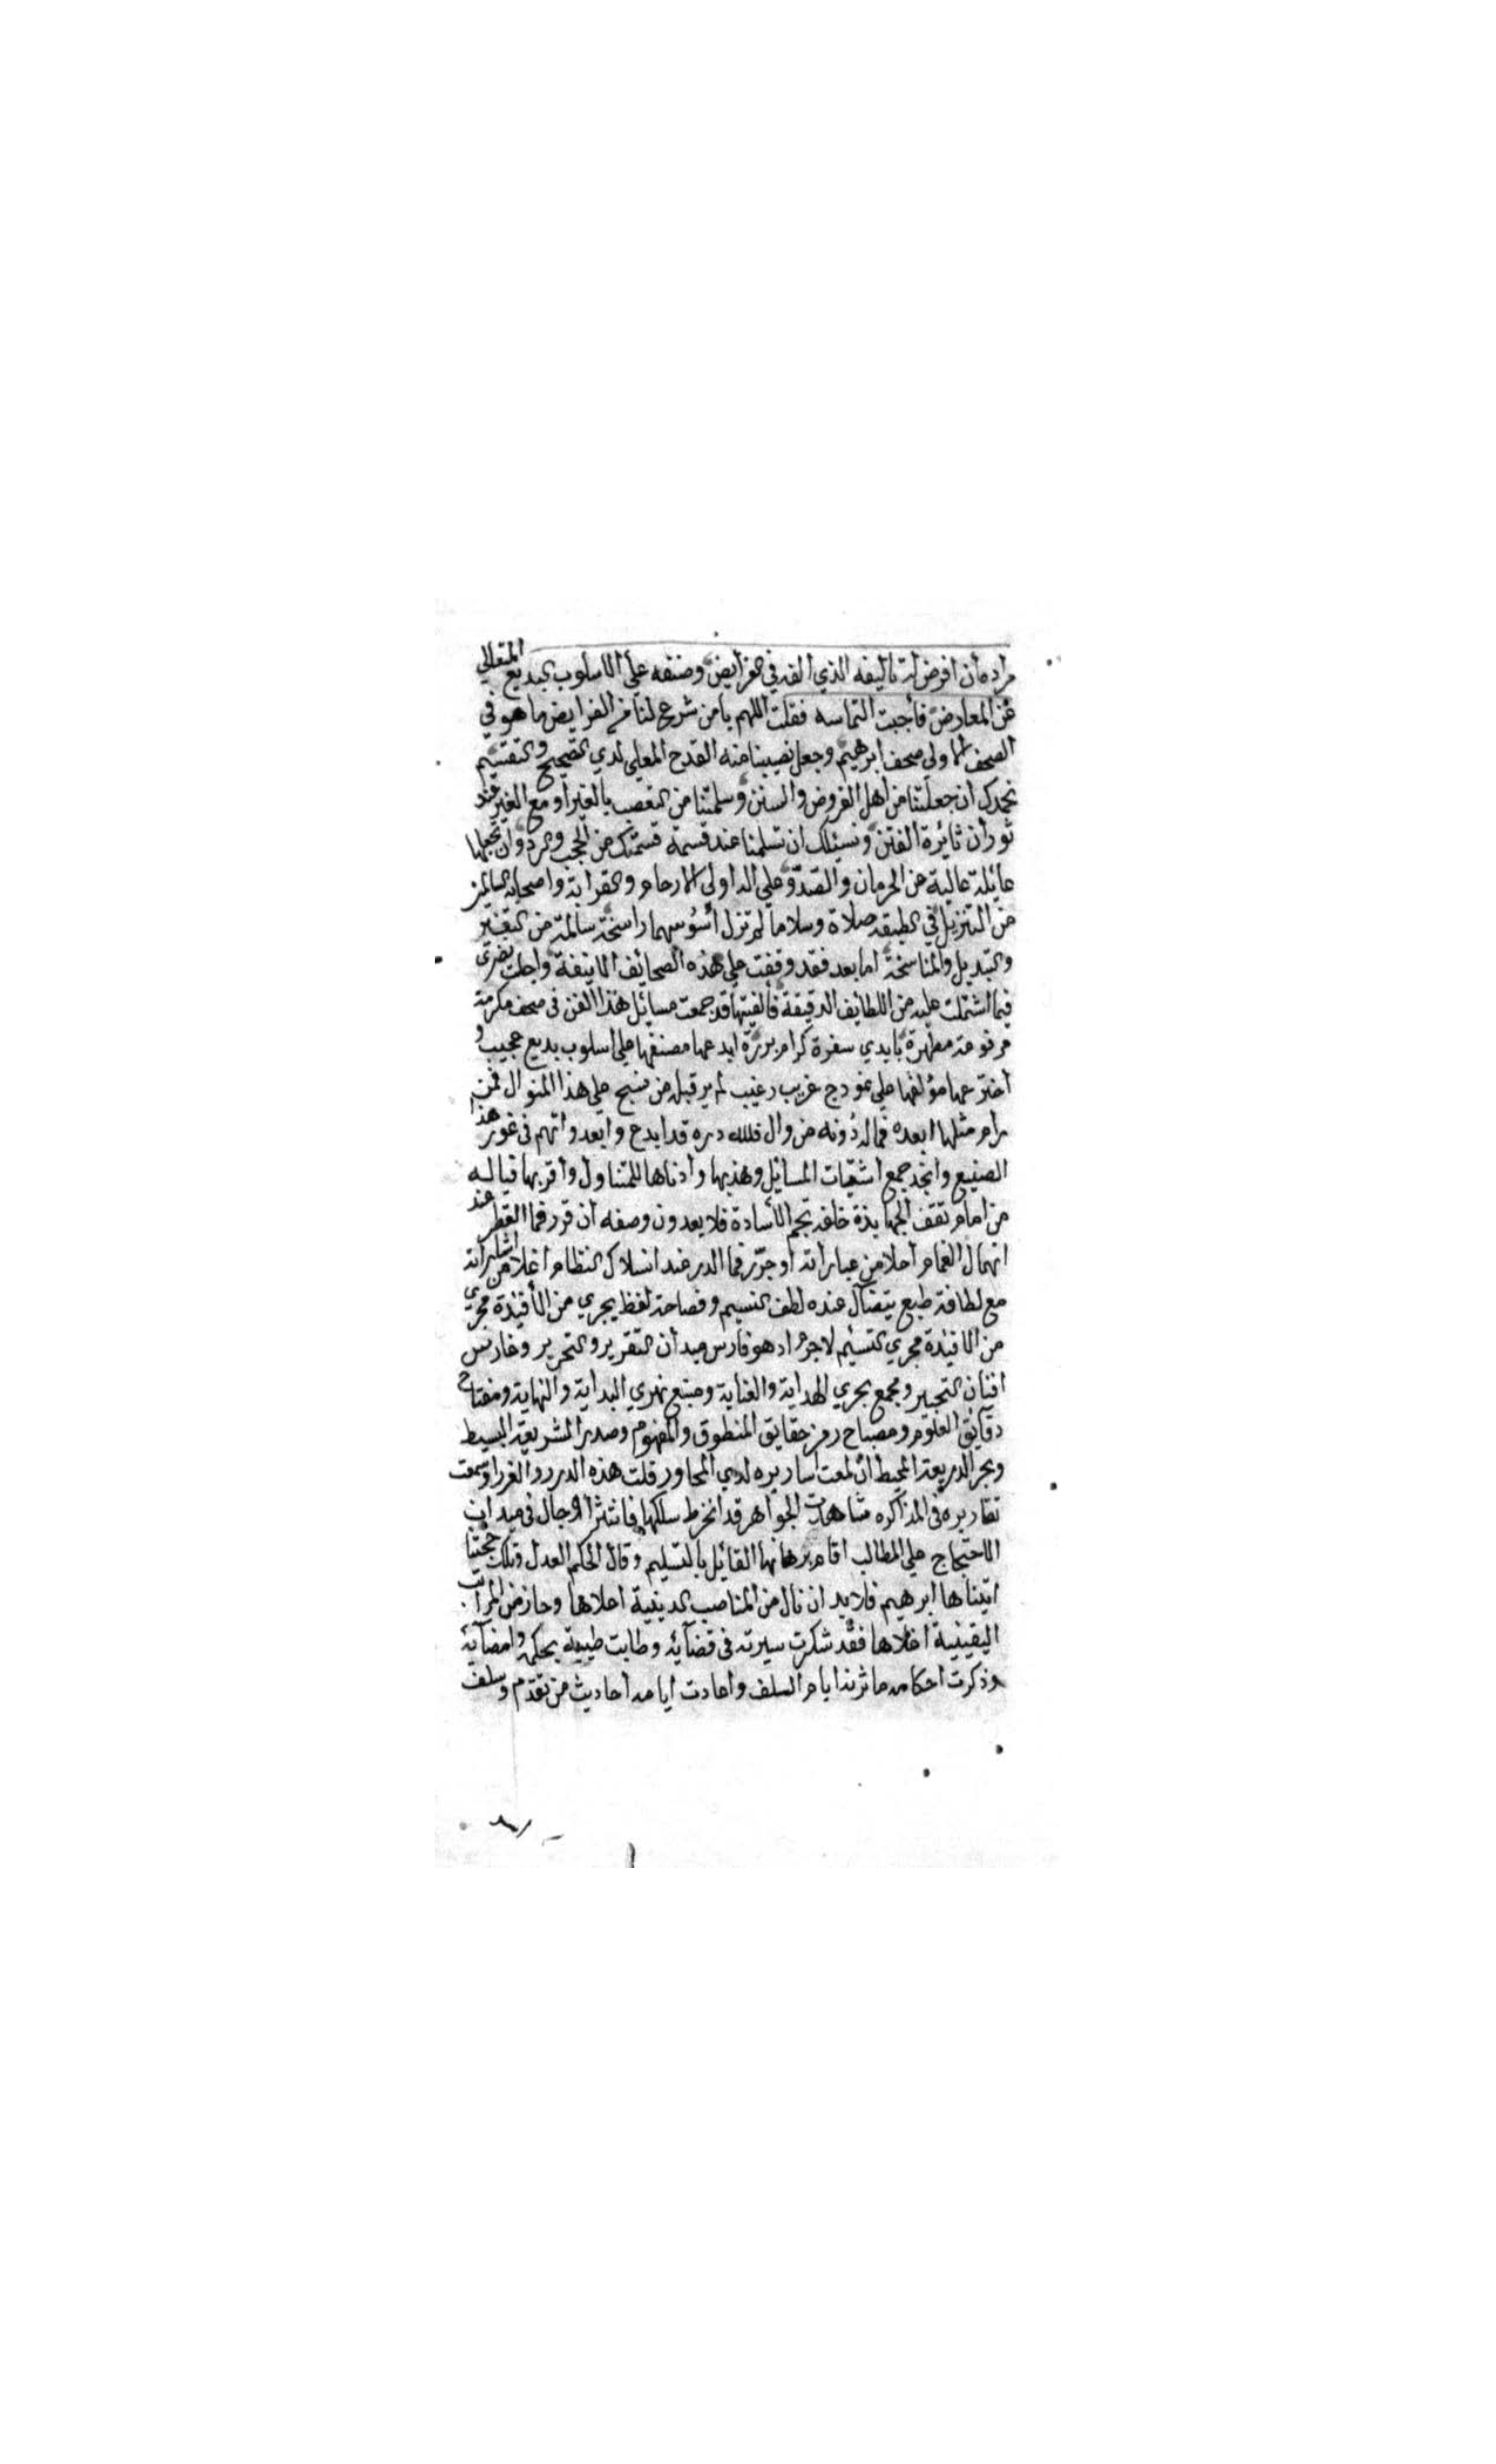 مراده أن اقرض له تأليفه الذي ألفه في الفرايض وصنفه علي الاسلوب البديع المتعالي
عن المعارض فأجبت التماسه فقلت اللهم يا من شرع لنا من الفرايض ما هو في
الصحف الاولي صحف ابرهيم وجعل نصيبنا منه القدح المعلي لدي التصحيح والتقسيم
نحمدك ان جعلتنا من اهل الفروض والسنن وسلمتنا من التعصب بالغير او مع الغير عند
ثوران ثائرة الفتن ونسئلك ان تسلمنا عند قسمة قسمتك من الحجب والرد وان تجعلها
عايلة عالية عن الحرمان والصد وعلي اله اولي الارحام والقرابة واصحابه السالمين
من التنزيل في الطبقة صلاة وسلاما لم تزل أسوسهما راسخة سالمة من التغيير
والتبديل والمناسخة اما بعد فقد وقفت علي هذه الصحائف الانيقة واجلت نظري
فيما اشتملت عليه من اللطايف الدقيقة فألفيتها قد جمعت مسائل هذا الفن في صحف مكرمة
مرفوعة مطهرة بأيدي سفرة كرام بررة ابدعها مصنفها علي اسلوب بديع عجيب و
أخترعها مؤلفها علي نموذج غريب رغيب لم ير قبله من نسج علي هذا المنوال فمن
رام مثلها ابعده فماله دونه من وال فلله دره قد ابدع وابعد واتهم في غور هذا
الصنيع وانجد جمع أشتات المسائل وهذبها وأدناها للمتناول وأقربها فياله
من امام تقف الجهابذة خلفه تجم الأسادة فلا يعدون وصفه أن قرر فما القطر عند
انهمال الغمام أحلا من عباراته أو حرر فما الدر عند انسلاك النظام اغلا من اشاراته
مع لطافة طبع يتضآل عنده لطف النسيم وفصاحة لفظ يجري من الأفئدة مجري
من الافئدة مجري التسنيم لا جرم اذ هو فارس ميدان التقرير والتحرير وغارس
افنان التحبير ومجمع بحري الهداية والعناية ومنبع نهري البداية والنهاية ومفتاح
دقايق العلوم ومصباح رمز حقايق المنطوق والمفهوم وصدر الشريعة البسيط
وبحر الذريعة المحيط ان لمعت اساريره لدي المحاور قلت هذه الدرر والغرر او سمعت
تقاريره في المذاكره شاهدت الجواهر قد انخرط سلكها فانتثر او جال في ميدان
الاحتجاج علي المطالب اقام برهانها القائل بالتسليم وقال الحكم العدل وتلك حجتنا
اتيناها ابرهيم فلا بد ان نال من المناصب الدينية اعلاها وحاز من المراتب
اليقينية اغلاها فقد شكرت سيرته في قضآئه وطابت طيبة بحكمه وامضآئه
وذكرت احكامه مآثرنا ايام السلف واعادت أيامه أحاديث من تقدم وسلف